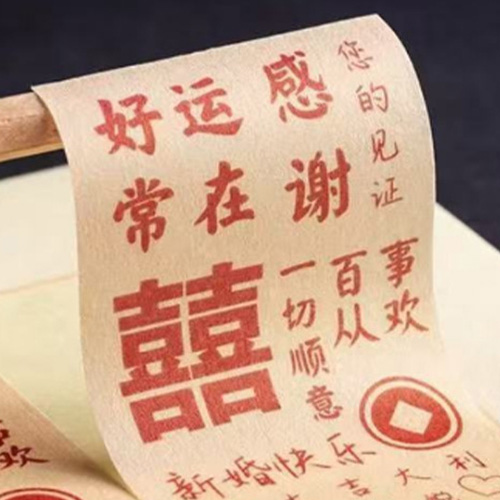 好运
常在
感谢
您的见证
囍
一切顺意
百事
从欢
新婚快乐
吉大利
欢